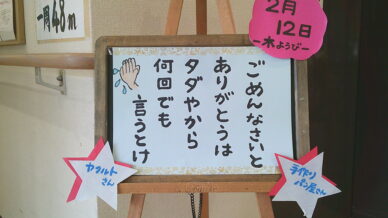 一周48m
2月
12日
–木ようび–
ごめんなさいと
ありがとうは
タダやから
何回でも
言うとけ
ヤクルト
さん
手作り
パン屋さん